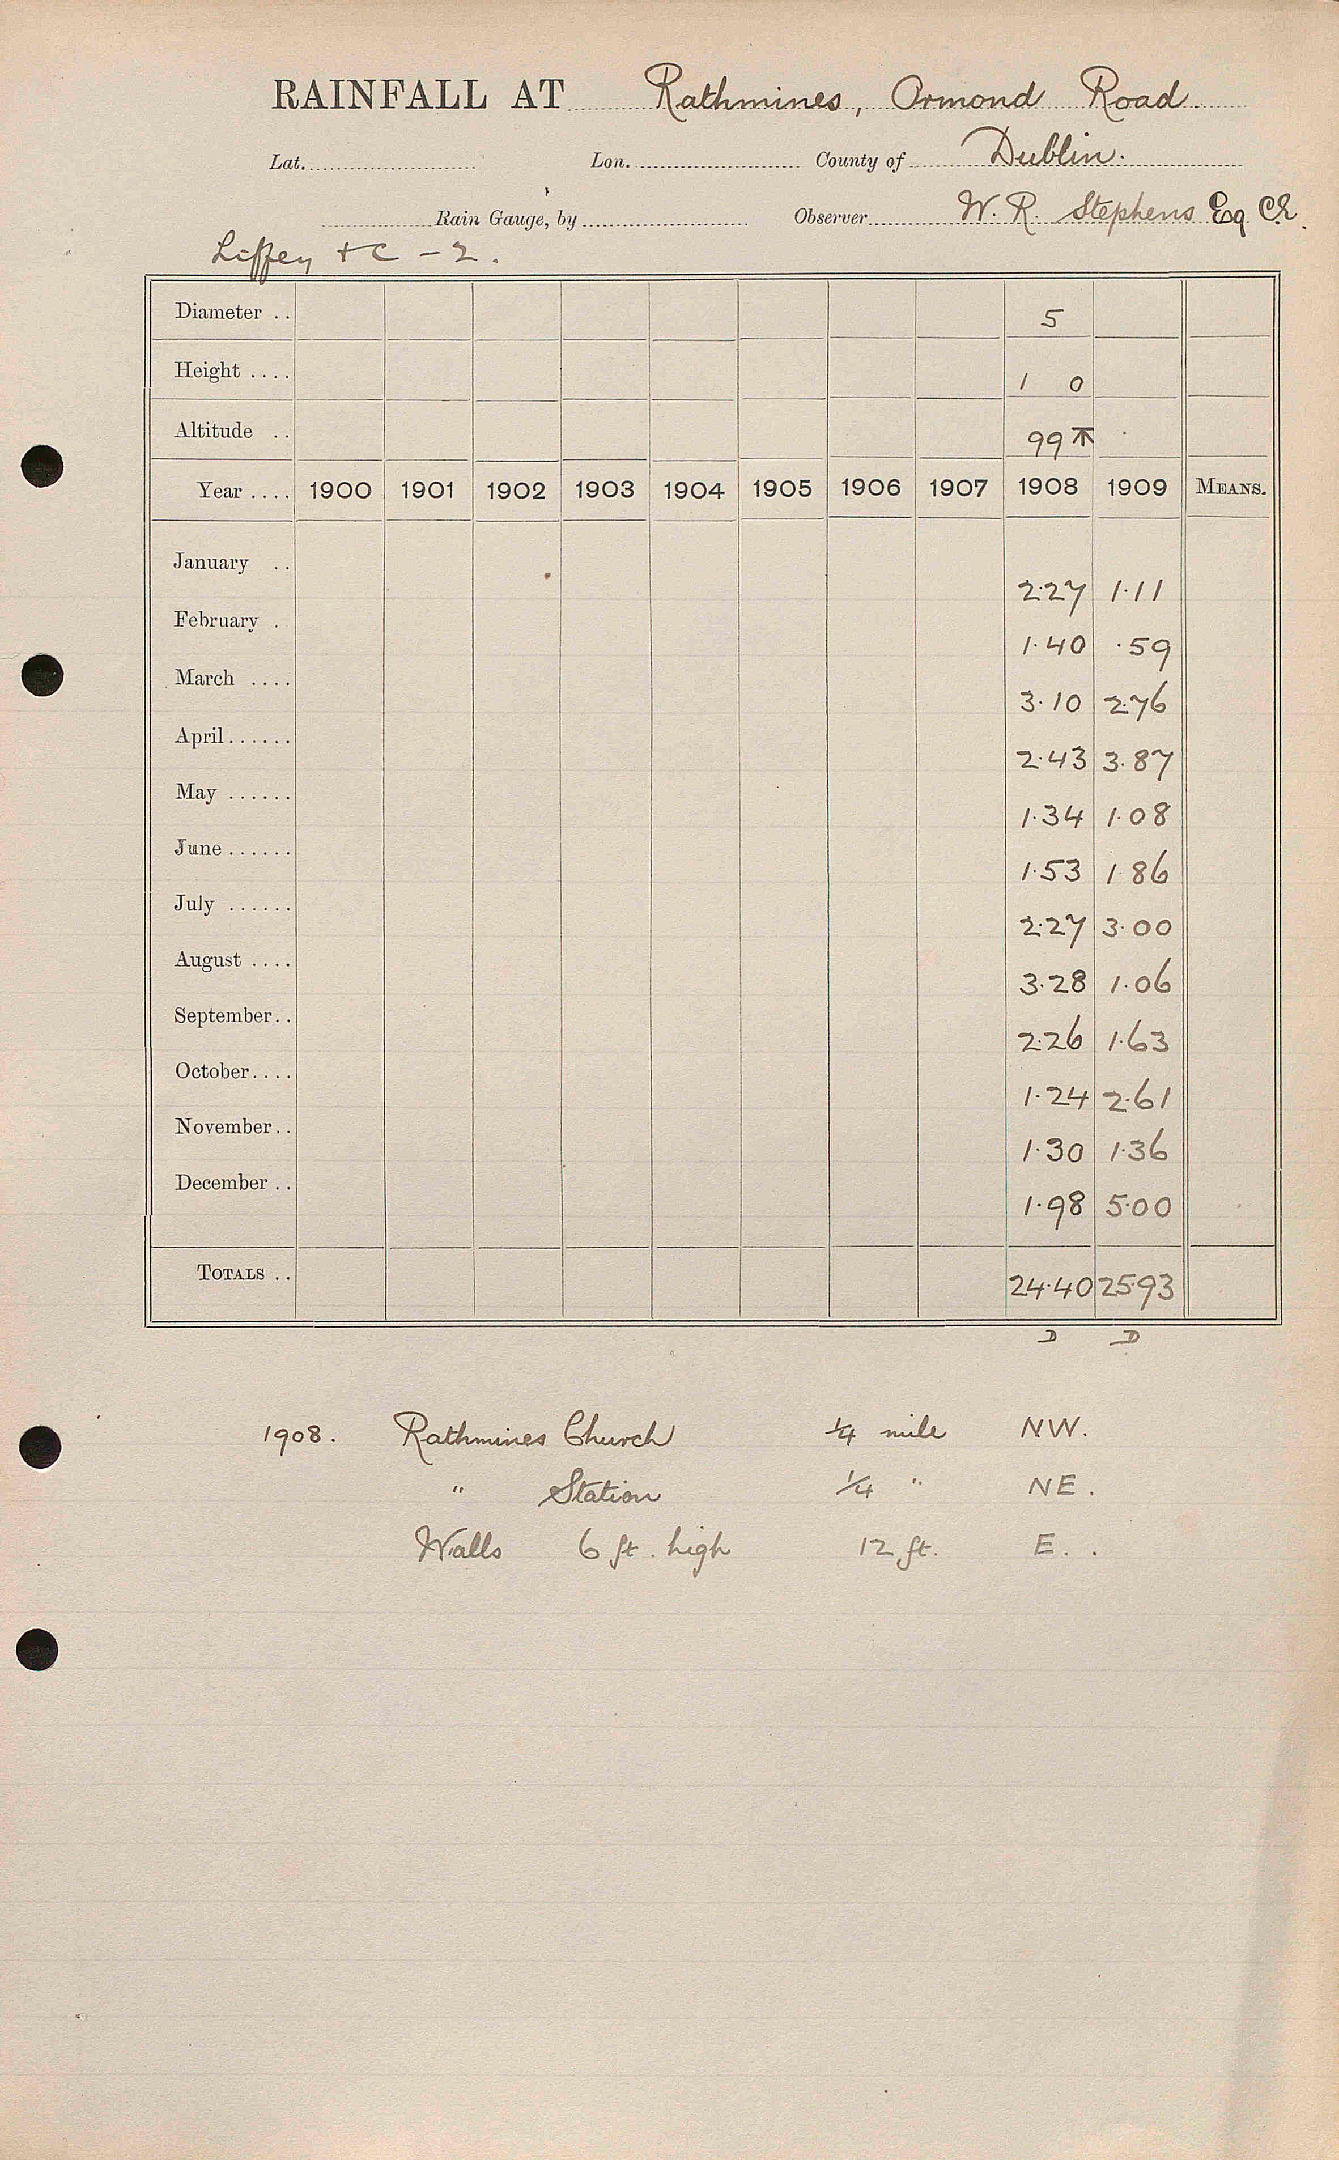 RAINFALL AT Rathmines, Ormond Road
Lat. Lon. County of Dublin.
Rain Gauge, by Observer W. R. Stephens Esq CE
Liffey + C - 2.
Diameter .. 5
Height .... 1 0
Altitude .. 99
Year .... 1900 1901 1902 1903 1904 1905 1906 1907 1908 1909 MEANS.
January .. 2.27 1.11
February . 1.40 .59
March .... 3.10 2.76
April...... 2.43 3.87
May ...... 1.34 1.08
June...... 1.53 1.86
July ...... 2.27 3.00
August .... 3.28 1.06
September.. 2.26 1.63
October.... 1.24 2.61
November.. 1.30 1.36
December .. 1.98 5.00
TOTALS .. 24.40 25.93
D D
1908. Rathmines Church 1/4 mile NW.
" Station 1/4 " NE.
Walls 6 ft. high 12 ft. E.